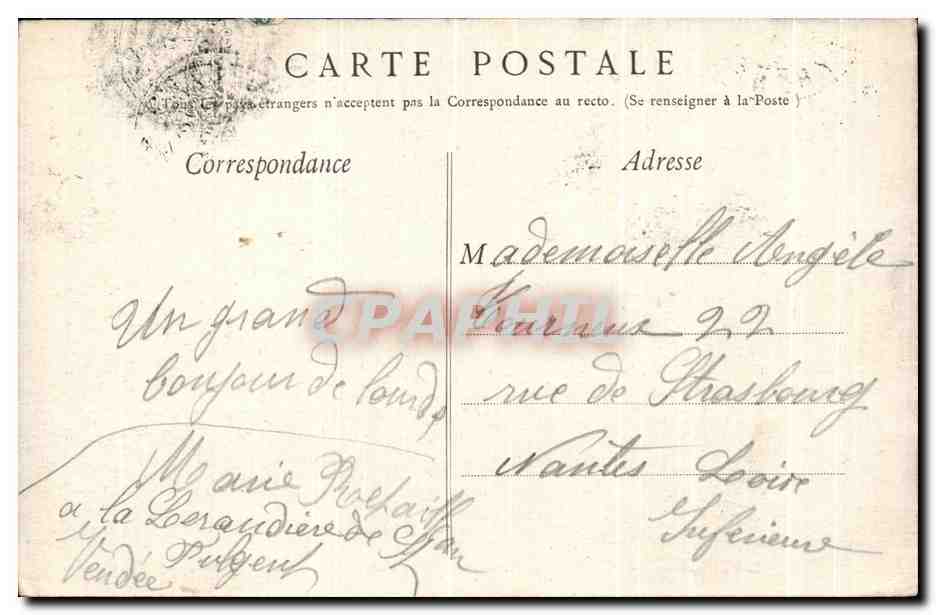 CARTE POSTALE
Tous les pays étrangers n'acceptent pas la Correspondance au recto. (Se renseigner à la Poste)
Correspondance
Adresse
Un grand
bonjour de lourdes
Marie
a la de
Pulgent
Vendée
Mademoiselle Angèle
22
rue de Strasbourg
Nantes Loire
Inferieure
CPAPHIL